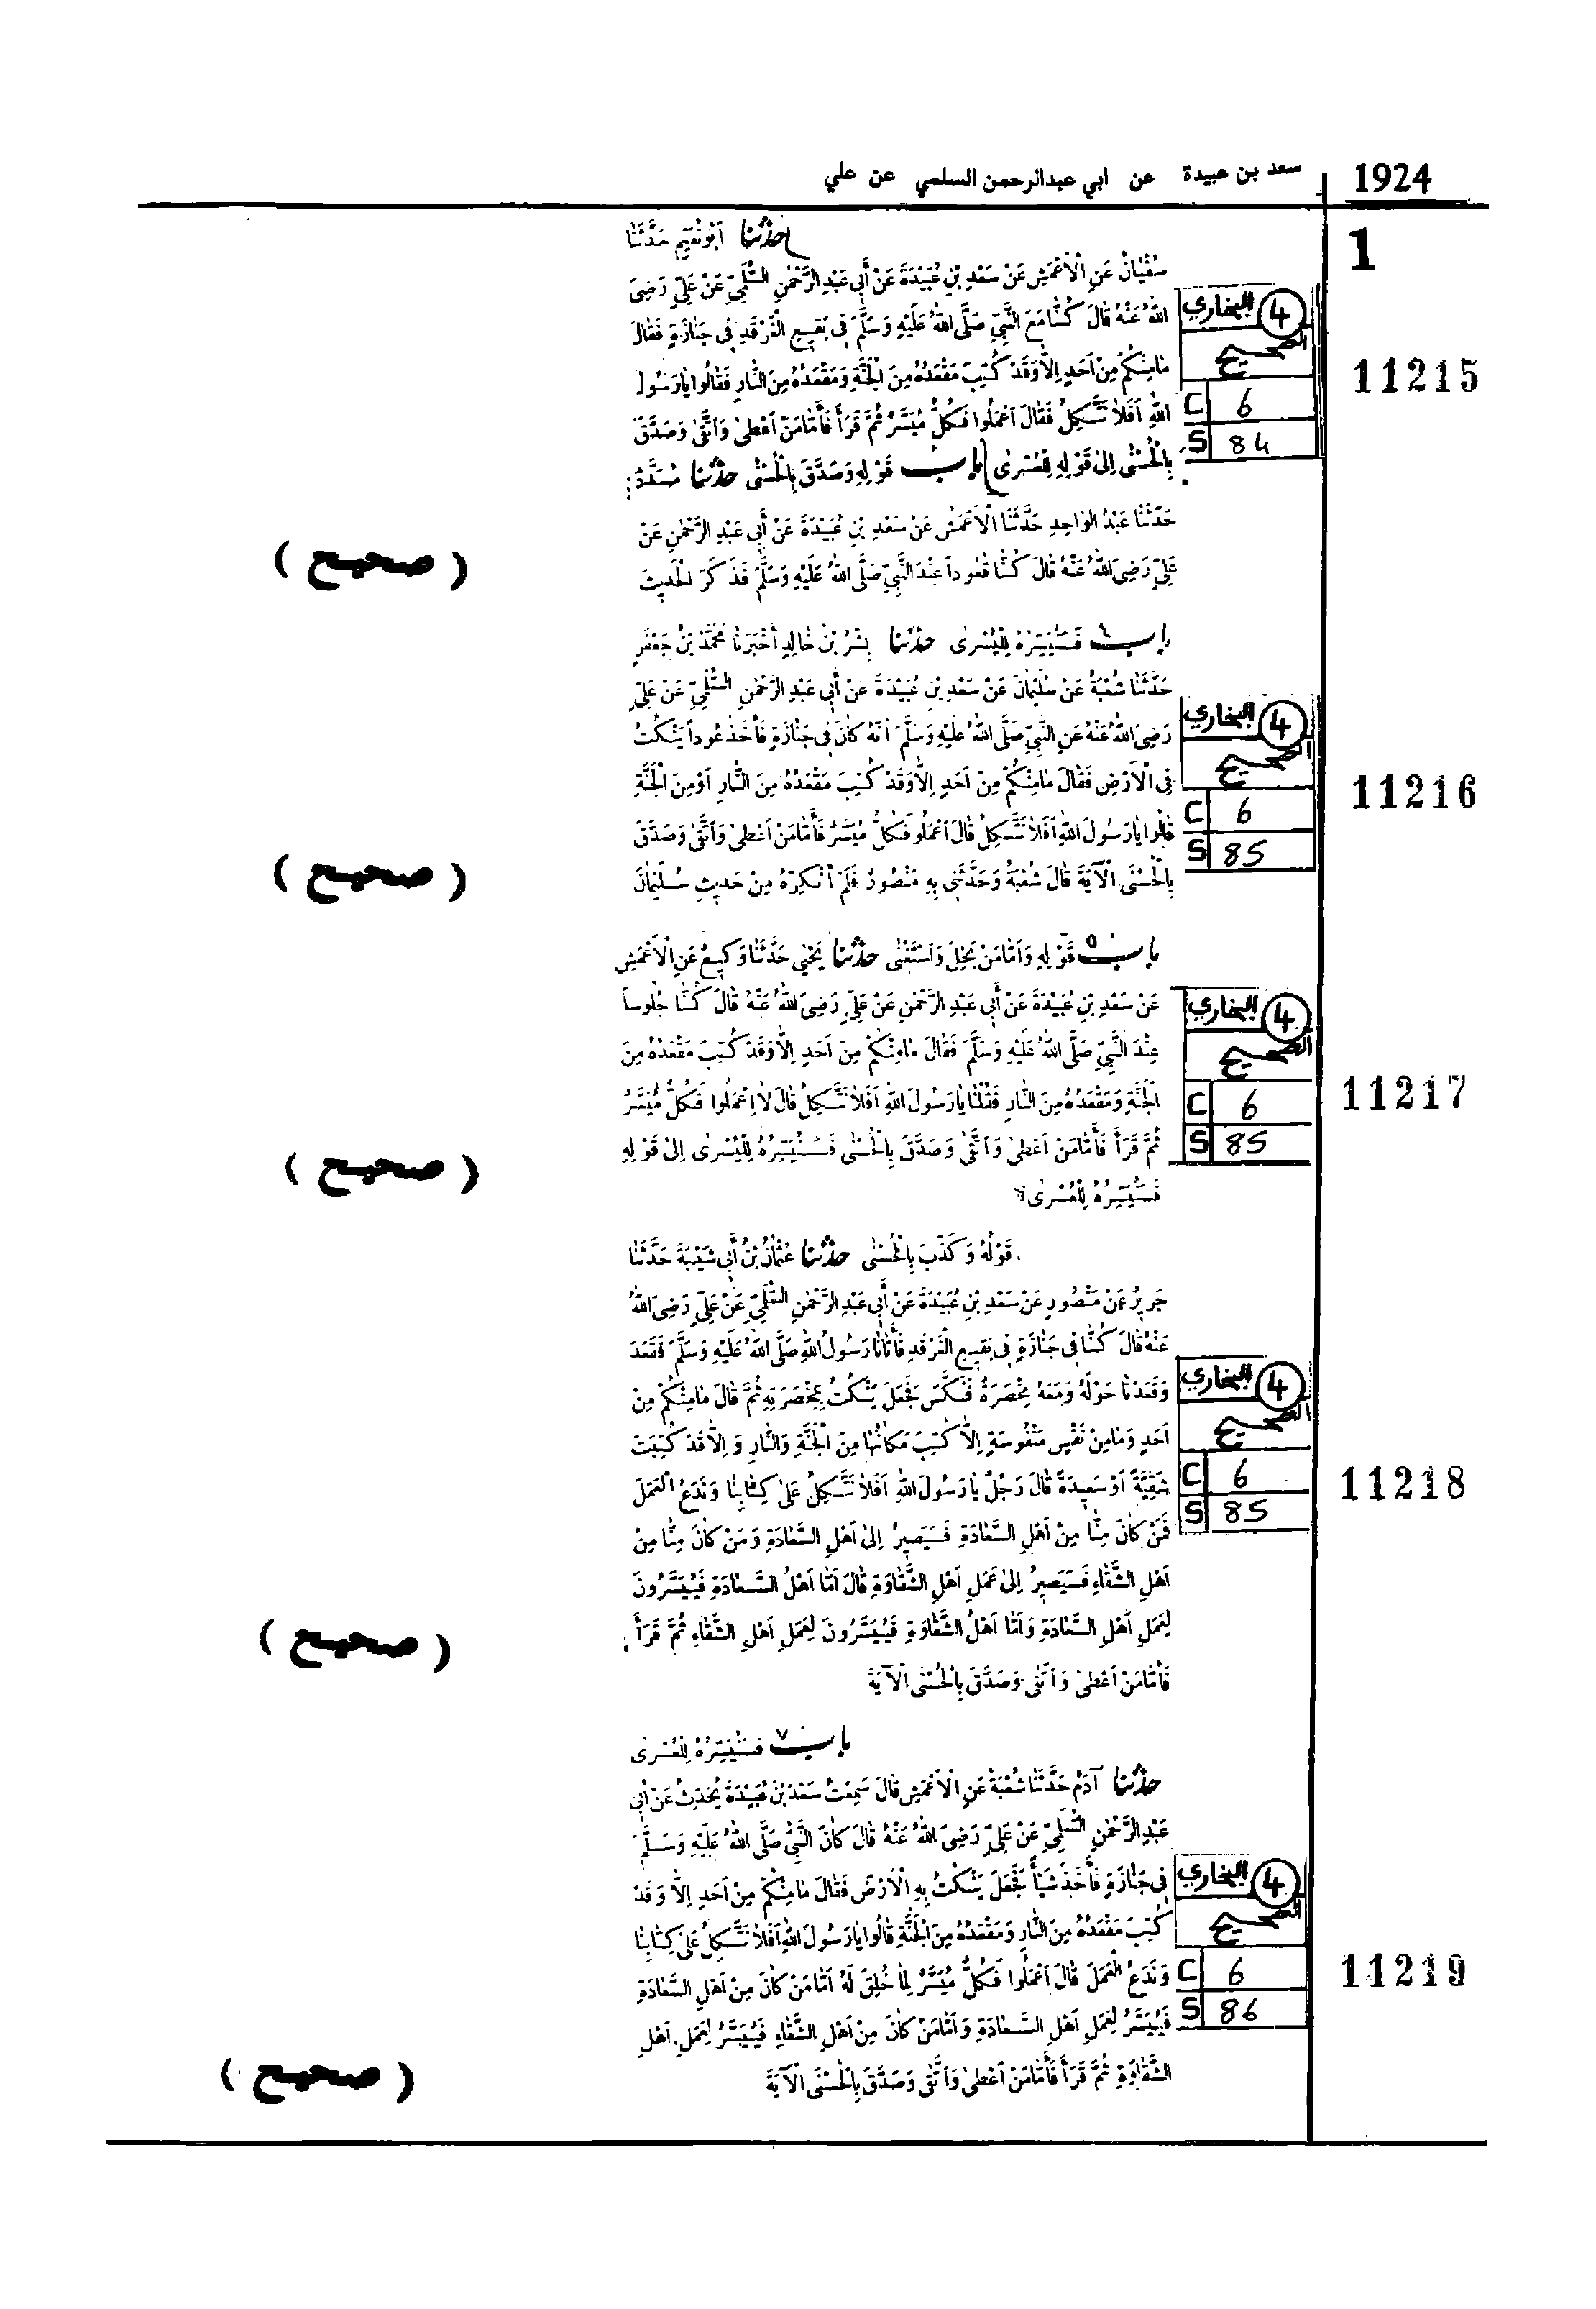 1924
سعد بن عبيدة عن ابي عبدالرحمن السلمي عن علي
1
حَدَّثَنَا أَبُو نُعَيْمٍ حَدَّثَنَا
سُفْيَانُ عَنِ الْأَعْمَشِ عَنْ سَعْدِ بْنِ عُبَيْدَةَ عَنْ أَبِي عَبْدِ الرَّحْمٰنِ السُّلَمِيِّ عَنْ عَلِيٍّ رَضِيَ
اللهُ عَنْهُ قَالَ كُنَّا مَعَ النَّبِيِّ صَلَّى اللهُ عَلَيْهِ وَسَلَّمَ فِي بَقِيعِ الْغَرْقَدِ فِي جَنَازَةٍ فَقَالَ
مَا مِنْكُمْ مِنْ أَحَدٍ إِلَّا وَقَدْ كُتِبَ مَقْعَدُهُ مِنَ الْجَنَّةِ وَمَقْعَدُهُ مِنَ النَّارِ فَقَالُوا يَا رَسُولَ
اللهِ أَفَلَا نَتَّكِلُ فَقَالَ اعْمَلُوا فَكُلٌّ مُيَسَّرٌ ثُمَّ قَرَأَ فَأَمَّا مَنْ أَعْطَى وَاتَّقَى وَصَدَّقَ
بِالْحُسْنَى إِلَى قَوْلِهِ لِلْعُسْرَى بَابُ قَوْلِهِ وَصَدَّقَ بِالْحُسْنَى حَدَّثَنَا مُسَدَّدٌ
حَدَّثَنَا عَبْدُ الْوَاحِدِ حَدَّثَنَا الْأَعْمَشُ عَنْ سَعْدِ بْنِ عُبَيْدَةَ عَنْ أَبِي عَبْدِ الرَّحْمٰنِ عَنْ
عَلِيٍّ رَضِيَ اللهُ عَنْهُ قَالَ كُنَّا قُعُوداً عِنْدَ النَّبِيِّ صَلَّى اللهُ عَلَيْهِ وَسَلَّمَ فَذَكَرَ الْحَدِيثَ
البخاري 4
الصحيح
C 6
S 84
11215
( صحيح )
بَابُ ٤ فَسَنُيَسِّرُهُ لِلْيُسْرَى حَدَّثَنَا بِشْرُ بْنُ خَالِدٍ أَخْبَرَنَا مُحَمَّدُ بْنُ جَعْفَرٍ
حَدَّثَنَا شُعْبَةُ عَنْ سُلَيْمَانَ عَنْ سَعْدِ بْنِ عُبَيْدَةَ عَنْ أَبِي عَبْدِ الرَّحْمٰنِ السُّلَمِيِّ عَنْ عَلِيٍّ
رَضِيَ اللهُ عَنْهُ عَنِ النَّبِيِّ صَلَّى اللهُ عَلَيْهِ وَسَلَّمَ أَنَّهُ كَانَ فِي جَنَازَةٍ فَأَخَذَ عُوداً يَنْكُتُ
فِي الْأَرْضِ فَقَالَ مَا مِنْكُمْ مِنْ أَحَدٍ إِلَّا وَقَدْ كُتِبَ مَقْعَدُهُ مِنَ النَّارِ أَوْ مِنَ الْجَنَّةِ
قَالُوا يَا رَسُولَ اللهِ أَفَلَا نَتَّكِلُ قَالَ اعْمَلُوا فَكُلٌّ مُيَسَّرٌ فَأَمَّا مَنْ أَعْطَى وَاتَّقَى وَصَدَّقَ
بِالْحُسْنَى الْآيَةَ قَالَ شُعْبَةُ وَحَدَّثَنِي بِهِ مَنْصُورٌ فَلَمْ أُنْكِرْهُ مِنْ حَدِيثِ سُلَيْمَانَ
البخاري 4
الصحيح
C 6
S 85
11216
( صحيح )
بَابُ ٥ قَوْلِهِ وَأَمَّا مَنْ بَخِلَ وَاسْتَغْنَى حَدَّثَنَا يَحْيَى حَدَّثَنَا وَكِيعٌ عَنِ الْأَعْمَشِ
عَنْ سَعْدِ بْنِ عُبَيْدَةَ عَنْ أَبِي عَبْدِ الرَّحْمٰنِ عَنْ عَلِيٍّ رَضِيَ اللهُ عَنْهُ قَالَ كُنَّا جُلُوساً
عِنْدَ النَّبِيِّ صَلَّى اللهُ عَلَيْهِ وَسَلَّمَ فَقَالَ مَا مِنْكُمْ مِنْ أَحَدٍ إِلَّا وَقَدْ كُتِبَ مَقْعَدُهُ مِنَ
الْجَنَّةِ وَمَقْعَدُهُ مِنَ النَّارِ فَقُلْنَا يَا رَسُولَ اللهِ أَفَلَا نَتَّكِلُ قَالَ لَا اعْمَلُوا فَكُلٌّ مُيَسَّرٌ
ثُمَّ قَرَأَ فَأَمَّا مَنْ أَعْطَى وَاتَّقَى وَصَدَّقَ بِالْحُسْنَى فَسَنُيَسِّرُهُ لِلْيُسْرَى إِلَى قَوْلِهِ
فَسَنُيَسِّرُهُ لِلْعُسْرَى
البخاري 4
الصحيح
C 6
S 85
11217
( صحيح )
قَوْلُهُ وَكَذَّبَ بِالْحُسْنَى حَدَّثَنَا عُثْمَانُ بْنُ أَبِي شَيْبَةَ حَدَّثَنَا
جَرِيرٌ عَنْ مَنْصُورٍ عَنْ سَعْدِ بْنِ عُبَيْدَةَ عَنْ أَبِي عَبْدِ الرَّحْمٰنِ السُّلَمِيِّ عَنْ عَلِيٍّ رَضِيَ اللهُ
عَنْهُ قَالَ كُنَّا فِي جَنَازَةٍ فِي بَقِيعِ الْغَرْقَدِ فَأَتَانَا رَسُولُ اللهِ صَلَّى اللهُ عَلَيْهِ وَسَلَّمَ فَقَعَدَ
وَقَعَدْنَا حَوْلَهُ وَمَعَهُ مِخْصَرَةٌ فَنَكَّسَ فَجَعَلَ يَنْكُتُ بِمِخْصَرَتِهِ ثُمَّ قَالَ مَا مِنْكُمْ مِنْ
أَحَدٍ وَمَا مِنْ نَفْسٍ مَنْفُوسَةٍ إِلَّا كُتِبَ مَكَانُهَا مِنَ الْجَنَّةِ وَالنَّارِ وَإِلَّا قَدْ كُتِبَتْ
شَقِيَّةً أَوْ سَعِيدَةً قَالَ رَجُلٌ يَا رَسُولَ اللهِ أَفَلَا نَتَّكِلُ عَلَى كِتَابِنَا وَنَدَعُ الْعَمَلَ
فَمَنْ كَانَ مِنَّا مِنْ أَهْلِ السَّعَادَةِ فَسَيَصِيرُ إِلَى أَهْلِ السَّعَادَةِ وَمَنْ كَانَ مِنَّا مِنْ
أَهْلِ الشَّقَاءِ فَسَيَصِيرُ إِلَى عَمَلِ أَهْلِ الشَّقَاوَةِ قَالَ أَمَّا أَهْلُ السَّعَادَةِ فَيُيَسَّرُونَ
لِعَمَلِ أَهْلِ السَّعَادَةِ وَأَمَّا أَهْلُ الشَّقَاوَةِ فَيُيَسَّرُونَ لِعَمَلِ أَهْلِ الشَّقَاءِ ثُمَّ قَرَأَ
فَأَمَّا مَنْ أَعْطَى وَاتَّقَى وَصَدَّقَ بِالْحُسْنَى الْآيَةَ
البخاري 4
الصحيح
C 6
S 85
11218
( صحيح )
بَابُ ٧ فَسَنُيَسِّرُهُ لِلْعُسْرَى
حَدَّثَنَا آدَمُ حَدَّثَنَا شُعْبَةُ عَنِ الْأَعْمَشِ قَالَ سَمِعْتُ سَعْدَ بْنَ عُبَيْدَةَ يُحَدِّثُ عَنْ أَبِي
عَبْدِ الرَّحْمٰنِ السُّلَمِيِّ عَنْ عَلِيٍّ رَضِيَ اللهُ عَنْهُ قَالَ كَانَ النَّبِيُّ صَلَّى اللهُ عَلَيْهِ وَسَلَّمَ
فِي جَنَازَةٍ فَأَخَذَ شَيْأً فَجَعَلَ يَنْكُتُ بِهِ الْأَرْضَ فَقَالَ مَا مِنْكُمْ مِنْ أَحَدٍ إِلَّا وَقَدْ
كُتِبَ مَقْعَدُهُ مِنَ النَّارِ وَمَقْعَدُهُ مِنَ الْجَنَّةِ قَالُوا يَا رَسُولَ اللهِ أَفَلَا نَتَّكِلُ عَلَى كِتَابِنَا
وَنَدَعُ الْعَمَلَ قَالَ اعْمَلُوا فَكُلٌّ مُيَسَّرٌ لِمَا خُلِقَ لَهُ أَمَّا مَنْ كَانَ مِنْ أَهْلِ السَّعَادَةِ
فَيُيَسَّرُ لِعَمَلِ أَهْلِ السَّعَادَةِ وَأَمَّا مَنْ كَانَ مِنْ أَهْلِ الشَّقَاءِ فَيُيَسَّرُ لِعَمَلِ أَهْلِ
الشَّقَاوَةِ ثُمَّ قَرَأَ فَأَمَّا مَنْ أَعْطَى وَاتَّقَى وَصَدَّقَ بِالْحُسْنَى الْآيَةَ
البخاري 4
الصحيح
C 6
S 86
11219
( صحيح )